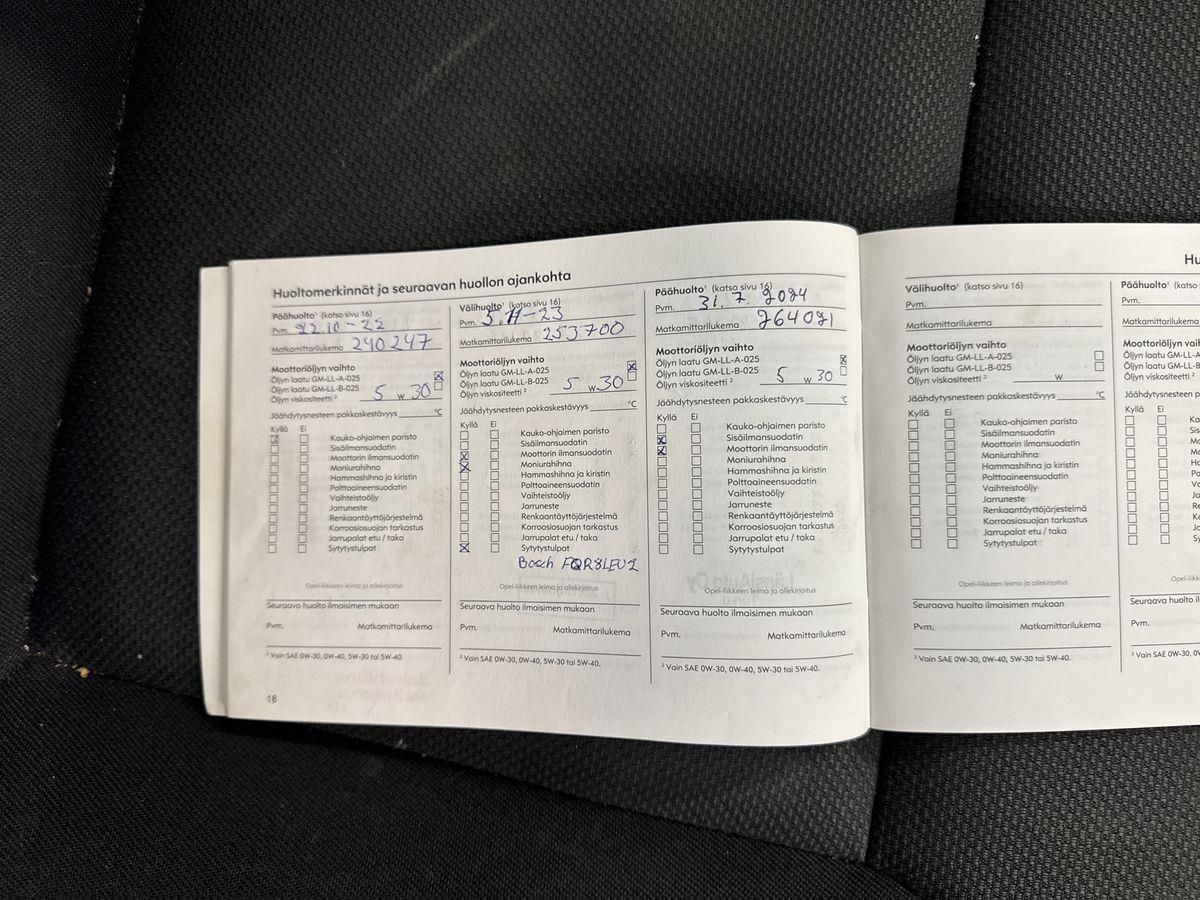 Huoltomerkinnät ja seuraavan huollon ajankohta
Päähuolto¹ (katso sivu 16)
Pvm. 22.10-22
Matkamittarilukema 240247
Moottoriöljyn vaihto
Öljyn laatu GM-LL-A-025
Öljyn laatu GM-LL-B-025
Öljyn viskositeetti ² 5 w 30
Jäähdytysnesteen pakkaskestävyys °C
Kyllä Ei
Kauko-ohjaimen paristo
Sisäilmansuodatin
Moottorin ilmansuodatin
Moniurahihna
Hammashihna ja kiristin
Polttoaineensuodatin
Vaihteistoöljy
Jarruneste
Renkaantäyttöjärjestelmä
Korroosiosuojan tarkastus
Jarrupalat etu / taka
Sytytystulpat
Opel-liikkeen leima ja allekirjoitus
Seuraava huolto ilmaisimen mukaan
Pvm. Matkamittarilukema
² Vain SAE 0W-30, 0W-40, 5W-30 tai 5W-40.
18
Välihuolto¹ (katso sivu 16)
Pvm. 5.11-23
Matkamittarilukema 253700
Moottoriöljyn vaihto
Öljyn laatu GM-LL-A-025
Öljyn laatu GM-LL-B-025
Öljyn viskositeetti ² 5 w 30
Jäähdytysnesteen pakkaskestävyys °C
Kyllä Ei
Kauko-ohjaimen paristo
Sisäilmansuodatin
Moottorin ilmansuodatin
Moniurahihna
Hammashihna ja kiristin
Polttoaineensuodatin
Vaihteistoöljy
Jarruneste
Renkaantäyttöjärjestelmä
Korroosiosuojan tarkastus
Jarrupalat etu / taka
Sytytystulpat
Bosch FQR8LEU2
Opel-liikkeen leima ja allekirjoitus
Seuraava huolto ilmaisimen mukaan
Pvm. Matkamittarilukema
² Vain SAE 0W-30, 0W-40, 5W-30 tai 5W-40.
Päähuolto¹ (katso sivu 16)
Pvm. 31. 7. 2024
Matkamittarilukema 264021
Moottoriöljyn vaihto
Öljyn laatu GM-LL-A-025
Öljyn laatu GM-LL-B-025
Öljyn viskositeetti ² 5 w 30
Jäähdytysnesteen pakkaskestävyys °C
Kyllä Ei
Kauko-ohjaimen paristo
Sisäilmansuodatin
Moottorin ilmansuodatin
Moniurahihna
Hammashihna ja kiristin
Polttoaineensuodatin
Vaihteistoöljy
Jarruneste
Renkaantäyttöjärjestelmä
Korroosiosuojan tarkastus
Jarrupalat etu / taka
Sytytystulpat
Opel-liikkeen leima ja allekirjoitus
Seuraava huolto ilmaisimen mukaan
Pvm. Matkamittarilukema
² Vain SAE 0W-30, 0W-40, 5W-30 tai 5W-40.
Välihuolto¹ (katso sivu 16)
Pvm.
Matkamittarilukema
Moottoriöljyn vaihto
Öljyn laatu GM-LL-A-025
Öljyn laatu GM-LL-B-025
Öljyn viskositeetti ² w
Jäähdytysnesteen pakkaskestävyys °C
Kyllä Ei
Kauko-ohjaimen paristo
Sisäilmansuodatin
Moottorin ilmansuodatin
Moniurahihna
Hammashihna ja kiristin
Polttoaineensuodatin
Vaihteistoöljy
Jarruneste
Renkaantäyttöjärjestelmä
Korroosiosuojan tarkastus
Jarrupalat etu / taka
Sytytystulpat
Opel-liikkeen leima ja allekirjoitus
Seuraava huolto ilmaisimen mukaan
Pvm. Matkamittarilukema
² Vain SAE 0W-30, 0W-40, 5W-30 tai 5W-40.
Hu
Päähuolto¹ (katso
Pvm.
Matkamittarilukema
Moottoriöljyn vaih
Öljyn laatu GM-LL-A
Öljyn laatu GM-LL-B
Öljyn viskositeetti ²
Jäähdytysnesteen pa
Kyllä Ei
Ka
Sis
Mo
Mo
Ha
Po
Va
Ja
Re
Ko
Ja
Sy
Opel-l
Seuraava huolto il
Pvm.
² Vain SAE 0W-30, 0W